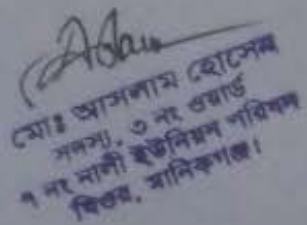 মোঃ আসলাম হোসেন
সদস্য, ৩ নং ওয়ার্ড
৭ নং নালী ইউনিয়ন পরিষদ
ঘিওর, মানিকগঞ্জ।